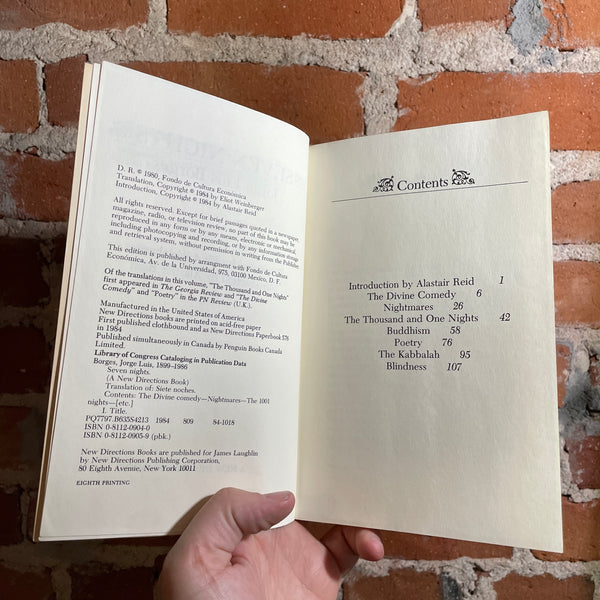 D. R. © 1980, Fondo de Cultura Económica
Translation, Copyright © 1984 by Eliot Weinberger
Introduction, Copyright © 1984 by Alastair Reid
All rights reserved. Except for brief passages quoted in a newspaper,
magazine, radio, or television review, no part of this book may be
reproduced in any form or by any means, electronic or mechanical,
including photocopying and recording, or by any information storage
and retrieval system, without permission in writing from the Publisher.
This edition is published by arrangment with Fondo de Cultura
Económica, Av. de la Universidad, 975, 03100 Mexico, D. F.
Of the translations in this volume, "The Thousand and One Nights"
first appeared in The Georgia Review and "The Divine
Comedy" and "Poetry" in the PN Review (U.K.).
Manufactured in the United States of America
New Directions books are printed on acid-free paper
First published clothbound and as New Directions Paperbook 576
in 1984
Published simultaneously in Canada by Penguin Books Canada
Limited.
Library of Congress Cataloging in Publication Data
Borges, Jorge Luis, 1899–1986
Seven nights.
(A New Directions Book)
Translation of: Siete noches.
Contents: The Divine comedy—Nightmares—The 1001
nights—[etc.]
I. Title.
PQ7797.B635S4213 1984 809 84-1018
ISBN 0-8112-0904-0
ISBN 0-8112-0905-9 (pbk.)
New Directions Books are published for James Laughlin
by New Directions Publishing Corporation,
80 Eighth Avenue, New York 10011
EIGHTH PRINTING
Contents
Introduction by Alastair Reid 1
The Divine Comedy 6
Nightmares 26
The Thousand and One Nights 42
Buddhism 58
Poetry 76
The Kabbalah 95
Blindness 107